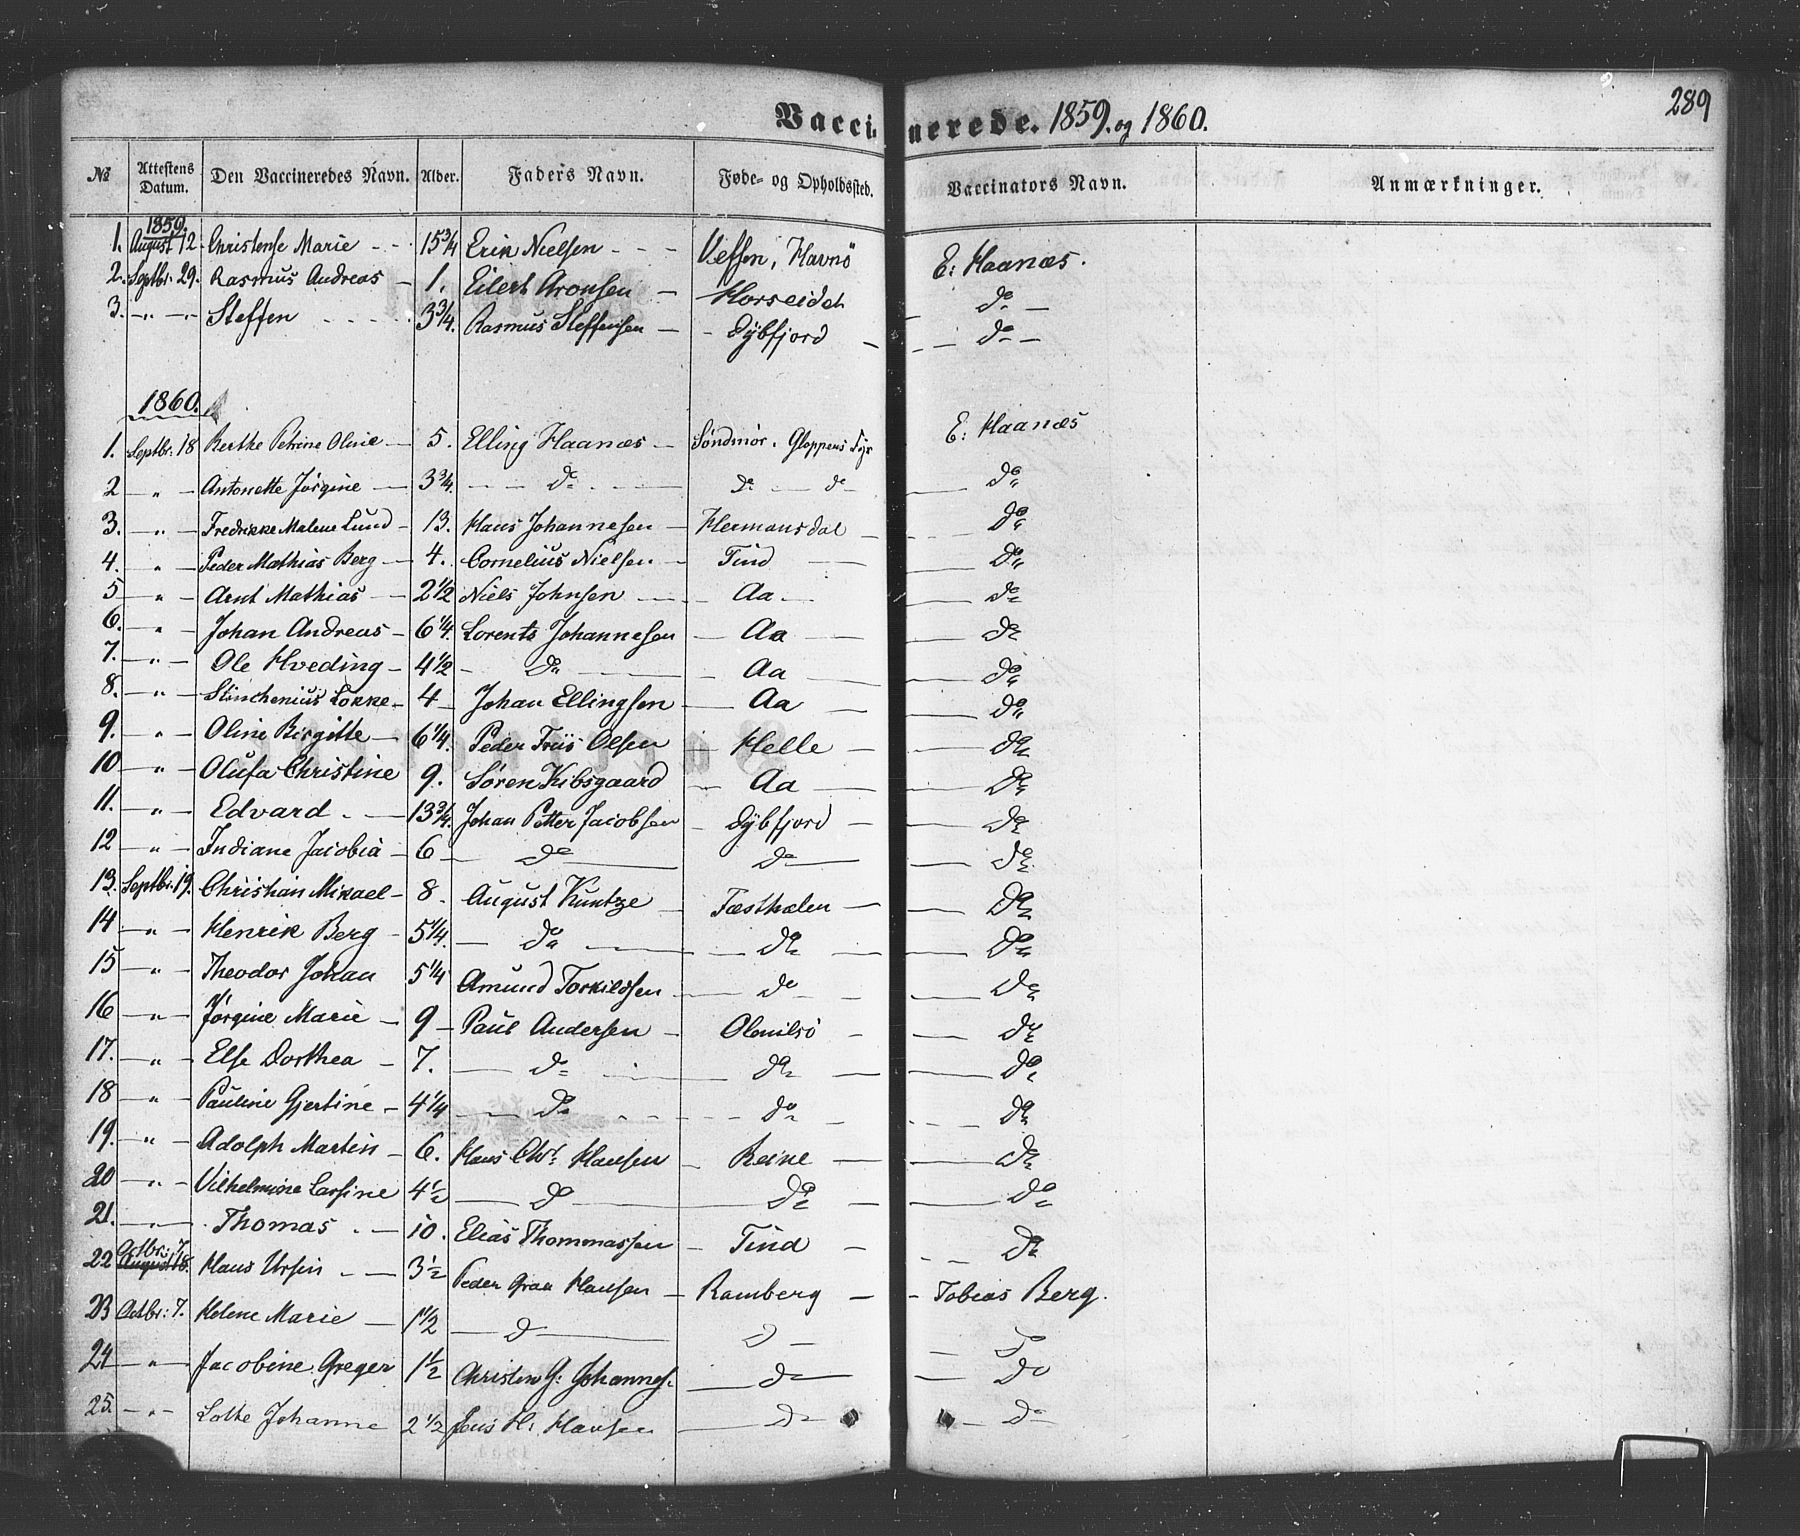 Vaccinerede. 1859. og 1860. 289
№ Attestens Datum. Den Vaccineredes Navn. Alder. Faders Navn. Føde- og Opholdssted. Vaccinators Navn. Anmærkninger.
1859.
1. August 12. Christense Marie 15 3/4 Erik Nielsen Vefsen, Havnö E: Haanæs.
2. Septbr: 29. Rasmus Andreas 1. Eilert Aronsen Horseidet do
3. " Steffen 3 3/4. Rasmus Steffensen Dybfjord do
1860.
1. Septbr: 18 Berthe Petrine Oline 5. Elling Haanæs Søndmør. Gloppens E: Haanæs
2 " Antonette Jørgine 3 3/4. do do do do
3. " Fredrikke Malene Lund 13. Hans Johannesen Hermansdal do
4. " Peder Mathias Berg 4. Cornelius Nielsen Tind do
5 " Arnt Mathias 2 1/2 Niels Johnsen Aa do
6. " Johan Andreas 6 1/4. Lorents Johannesen Aa do
7. " Ole Hveding 4 1/2 do Aa do
8. " Lokke 4 Johan Ellingsen Aa do
9. " Oline Birgitte 6 1/4. Peder Friis Olsen Helle do
10 " Olufa Christine 9. Søren Kibsgaard Aa do
11. " Edvard 13 3/4. Johan Petter Jacobsen Dybfjord do
12 " Indiane Jacobia 6 do do do
13. Septbr. 19. Christian Mikael 8. August Kuntze Tæsthælen do
14 " Henrik Berg 5 1/4. do do do
15 " Theodor Johan 5 1/4 Amund Torkildsen do do
16 " Jørgine Marie 9 Paul Andersen Olenilsö do
17. " Else Dorthea 7. do do do
18 " Pauline Gjertine 4 1/4 do do do
19. " Adolph Martin 6. Hans Chr. Hansen Reine do
20 " Vilhelmine Larsine 4 1/2 do do do
21. " Thomas 10. Elias Thommassen Tind do
22 Octbr: 7. August 18. Hans Ursin 3 1/2 Peder Graa Hansen Ramberg Tobias Berg.
23 Octbr: 7. Helene Marie 1 1/2 do do do
24 " Jacobine Greger 1 1/2 Christen G: Johannes. do do
25. " Lotte Johanne 2 1/2 Jens H: Hansen do do